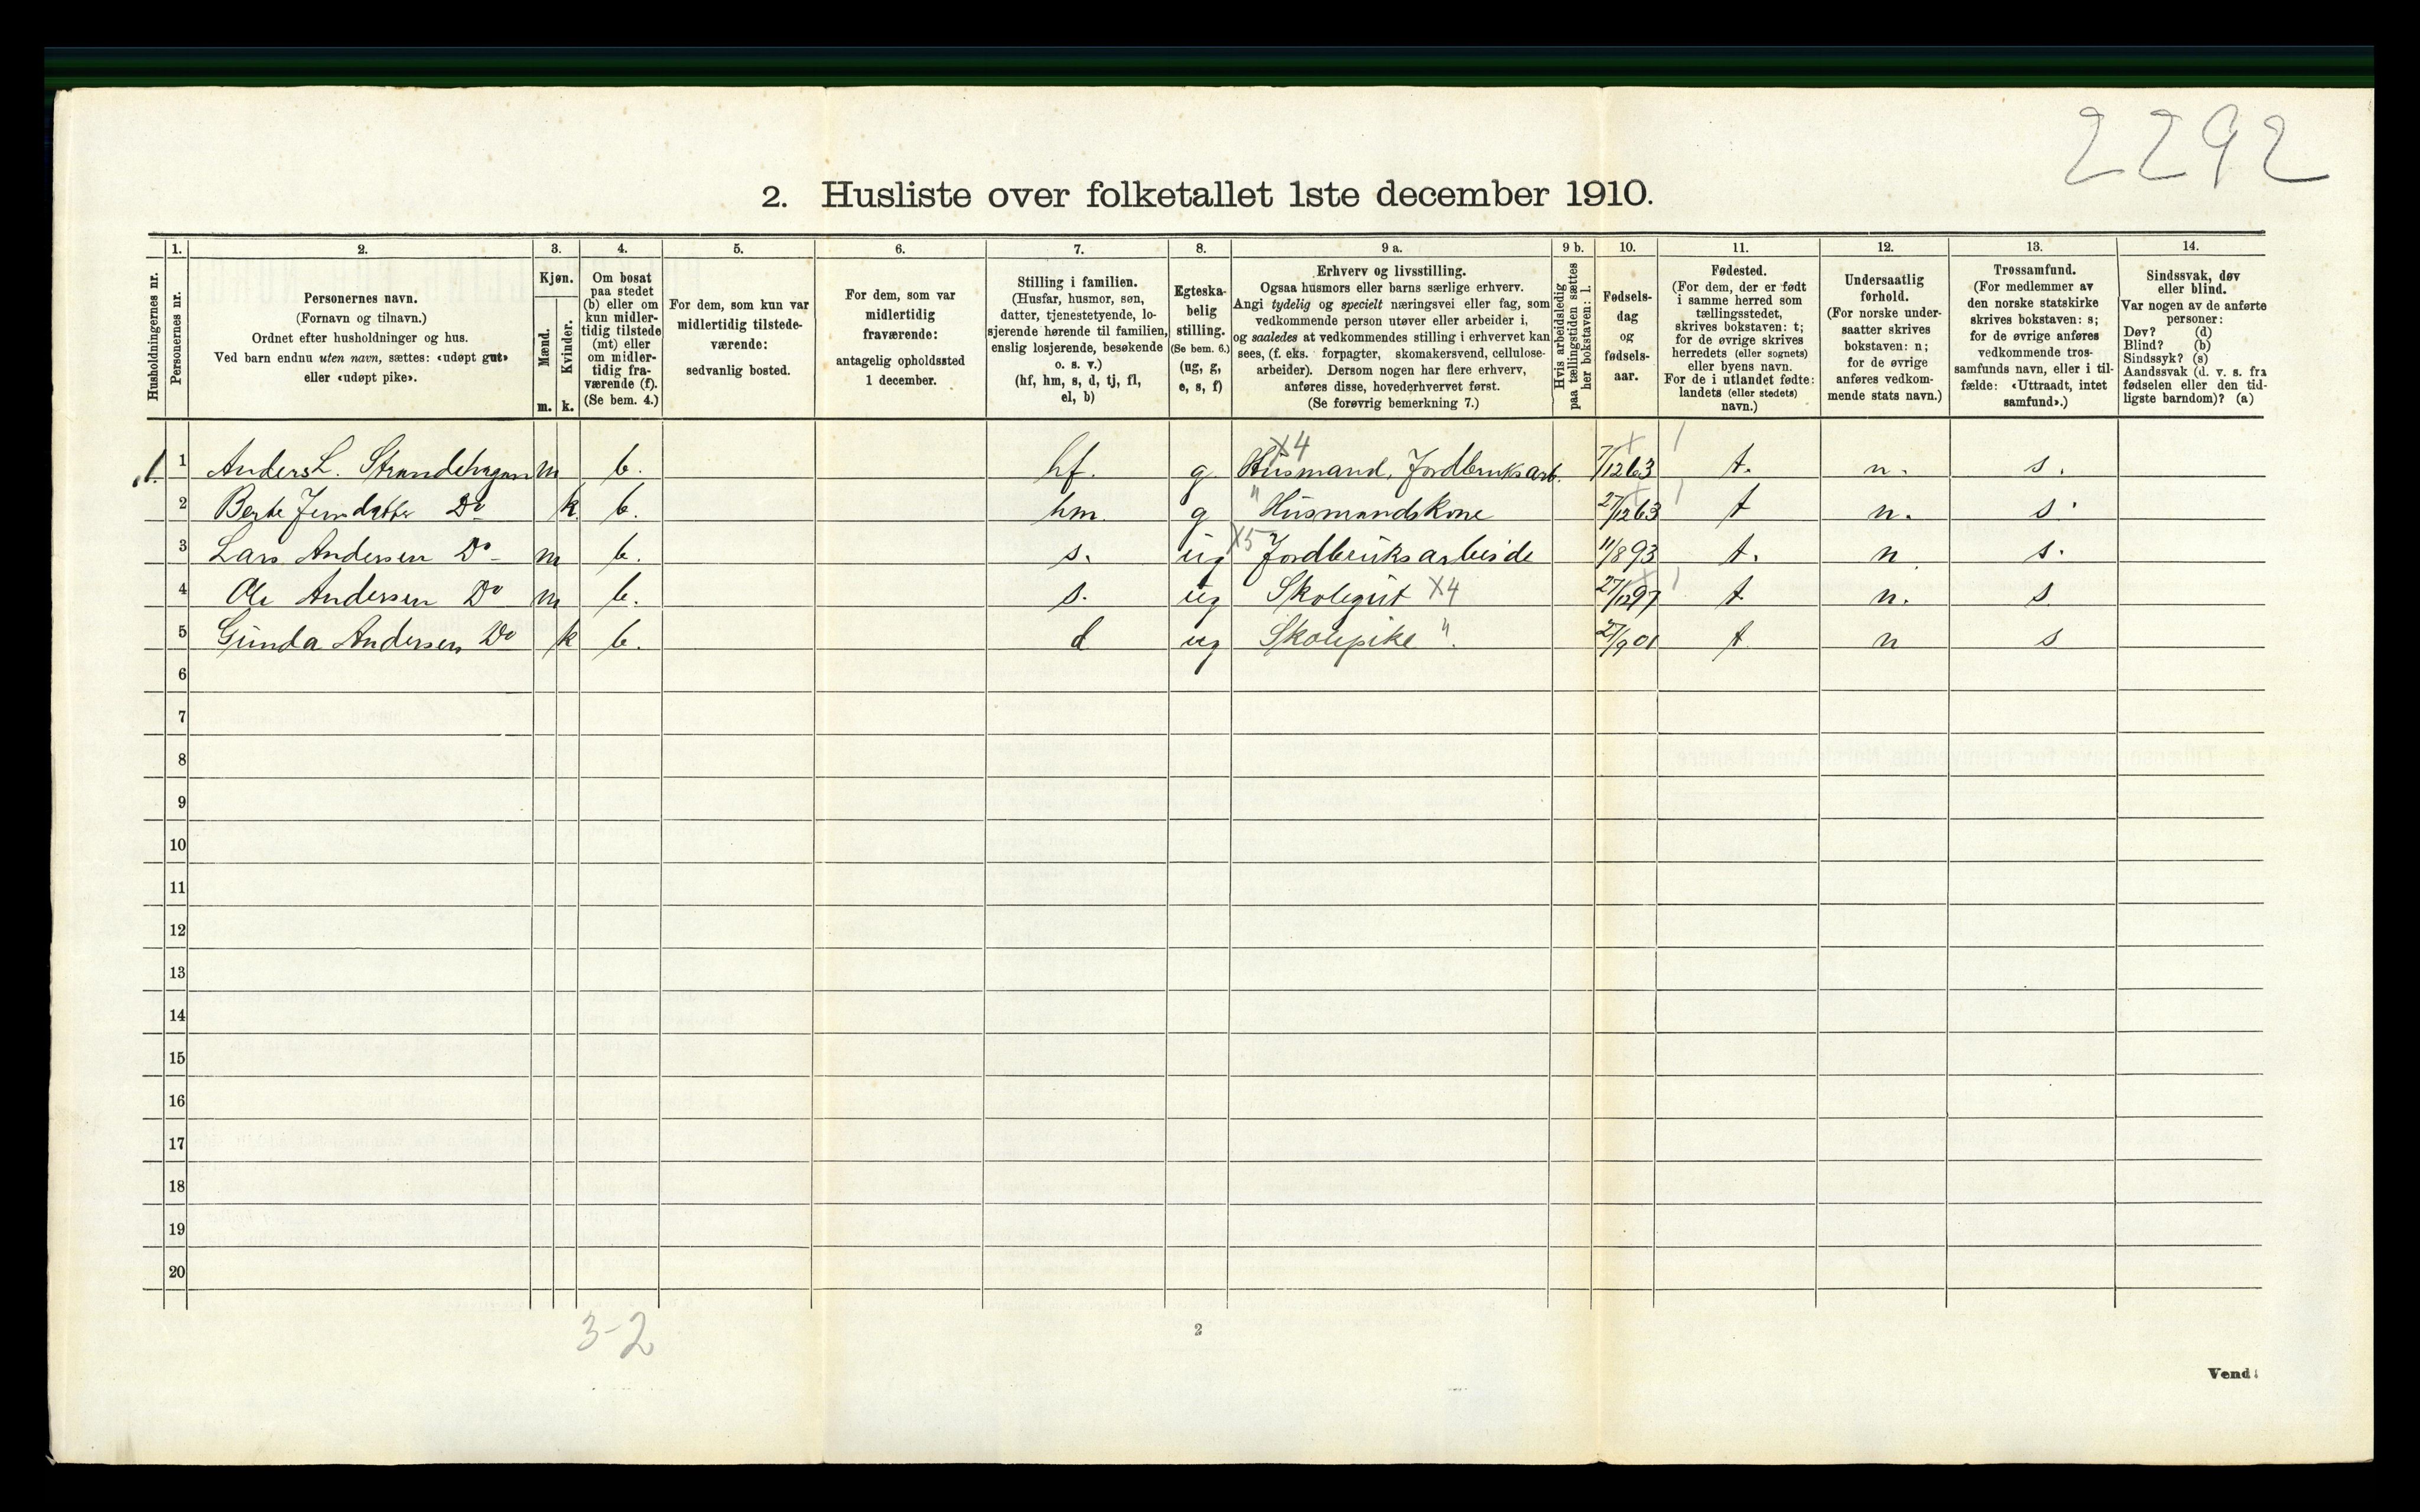 2292
2. Husliste over folketallet 1ste december 1910.
Husholdningernes nr.
1. Personernes nr.
2. Personernes navn.
(Fornavn og tilnavn.)
Ordnet efter husholdninger og hus.
Ved barn endnu uten navn, sættes: «udøpt gut»
eller «udøpt pike».
3. Kjøn.
Mænd. Kvinder.
m. k.
4. Om bosat
paa stedet
(b) eller om
kun midler-
tidig tilstede
(mt) eller
om midler-
tidig fra-
værende (f).
(Se bem. 4.)
5. For dem, som kun var
midlertidig tilstede-
værende:
sedvanlig bosted.
6. For dem, som var
midlertidig
fraværende:
antagelig opholdssted
1 december.
7. Stilling i familien.
(Husfar, husmor, søn,
datter, tjenestetyende, lo-
sjerende hørende til familien,
enslig losjerende, besøkende
o. s. v.)
(hf, hm, s, d, tj, fl,
el, b)
8. Egteska-
belig
stilling.
(Se bem. 6.)
(ug, g,
e, s, f)
9 a. Erhverv og livsstilling.
Ogsaa husmors eller barns særlige erhverv.
Angi tydelig og specielt næringsvei eller fag, som
vedkommende person utøver eller arbeider i,
og saaledes at vedkommendes stilling i erhvervet kan
sees, (f. eks. forpagter, skomakersvend, cellulose-
arbeider). Dersom nogen har flere erhverv,
anføres disse, hovederhvervet først.
(Se forøvrig bemerkning 7.)
9 b. Hvis arbeidsledig
paa tællingstiden sættes
her bokstaven: l.
10. Fødsels-
dag
og
fødsels-
aar.
11. Fødested.
(For dem, der er født
i samme herred som
tællingsstedet,
skrives bokstaven: t;
for de øvrige skrives
herredets (eller sognets)
eller byens navn.
For de i utlandet fødte:
landets (eller stedets)
navn.)
12. Undersaatlig
forhold.
(For norske under-
saatter skrives
bokstaven: n;
for de øvrige
anføres vedkom-
mende stats navn.)
13. Trossamfund.
(For medlemmer av
den norske statskirke
skrives bokstaven: s;
for de øvrige anføres
vedkommende tros-
samfunds navn, eller i til-
fælde: «Uttraadt, intet
samfund».)
14. Sindssvak, døv
eller blind.
Var nogen av de anførte
personer:
Døv? (d)
Blind? (b)
Sindssyk? (s)
Aandssvak (d. v. s. fra
fødselen eller den tid-
ligste barndom)? (a)
X4
1. 1 Anders L. Strandehagen m b. hf. g Husmand, Jordbruksarb. 7/12 63 t. n. s.
2 Berte Jensdatter Do k b. hm. g " Husmandskone 27/12 63 t n. s.
3 Lars Andersen Do m b. s. ug X5 Jordbruksarbeide 11/8 93 t. n s.
4 Ole Andersen Do m b. s. ug Skolegut X4 27/12 97 t n. s
5 Gunda Andersen Do k b. d ug Skolepike " 27/9 01 t n s
6
7
8
9
10
11
12
13
14
15
16
17
18
19
20
3-2
2
Vend!